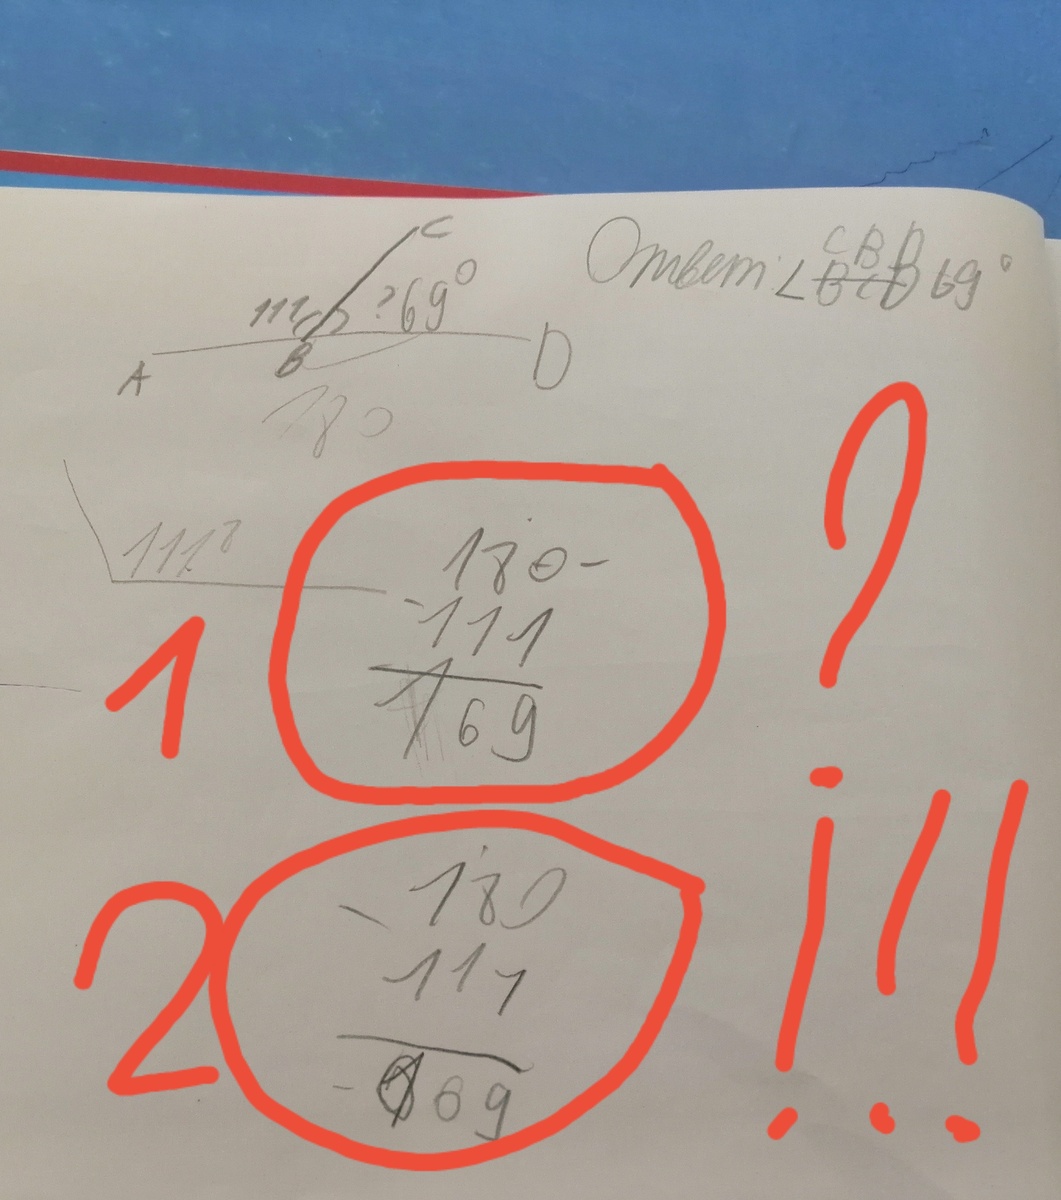 C
111 ? 69°
A B D
180
Ответ: ∠ CBD 69°
111°
1
180-
-111
69
?
2
- 180
111
- 69
!!!